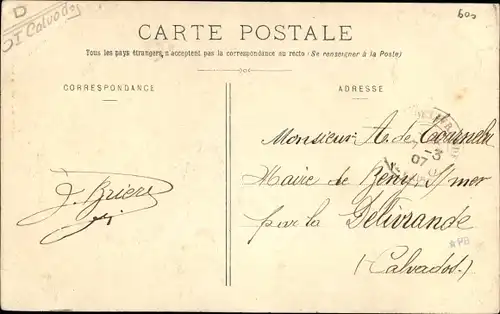 D
I Calvados
600
CARTE POSTALE
Tous les pays étrangers n'acceptent pas la correspondance au recto (Se renseigner à la Poste)
CORRESPONDANCE
ADRESSE
Monsieur A. de
Maire de Beny s/mer
par la Délivrande
(Calvados)
J. Briere
7 -3
07
*PB